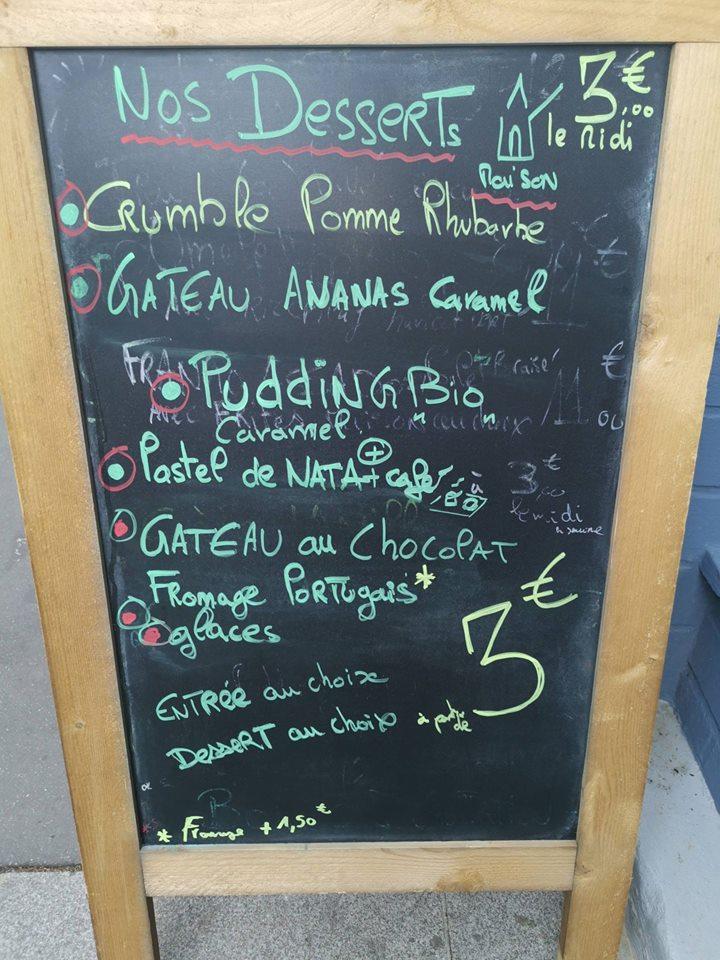 Nos Desserts
3€,00
le midi
Maison
Crumble Pomme Rhubarbe
GATEAU ANANAS caramel
PUDDING "Bio"
caramel
Pastel de NATA + café à 3€,00
le midi
GATEAU au CHOCOLAT
Fromage PORTUgais*
glaces
ENTRÉE au choix
DESSERT au choix à partir de 3€
* Fromage + 1,50€